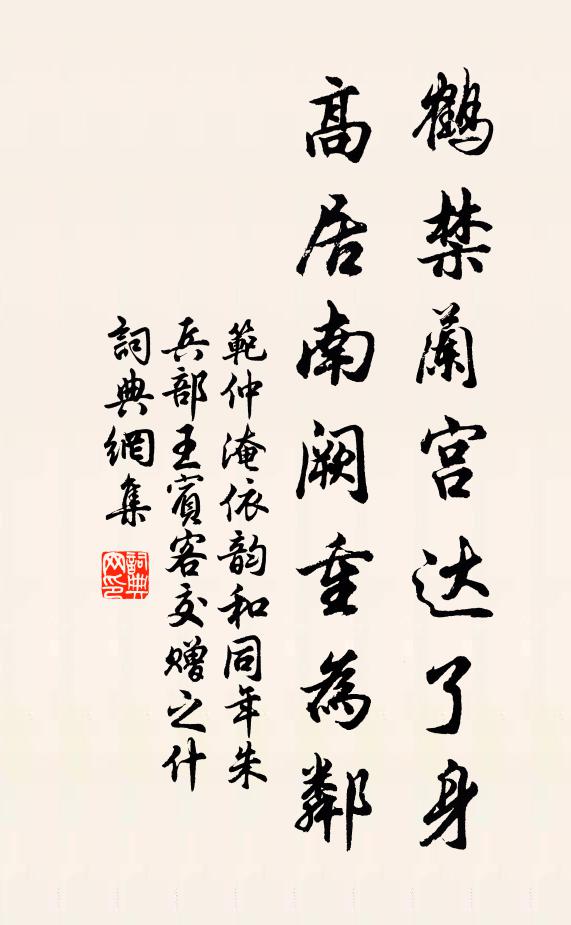 鶴禁蘭宫达了身
高居南阙重為鄰
範仲淹依韵和同年朱
兵部王賓客交贈之什
詞典網集
詞典网印